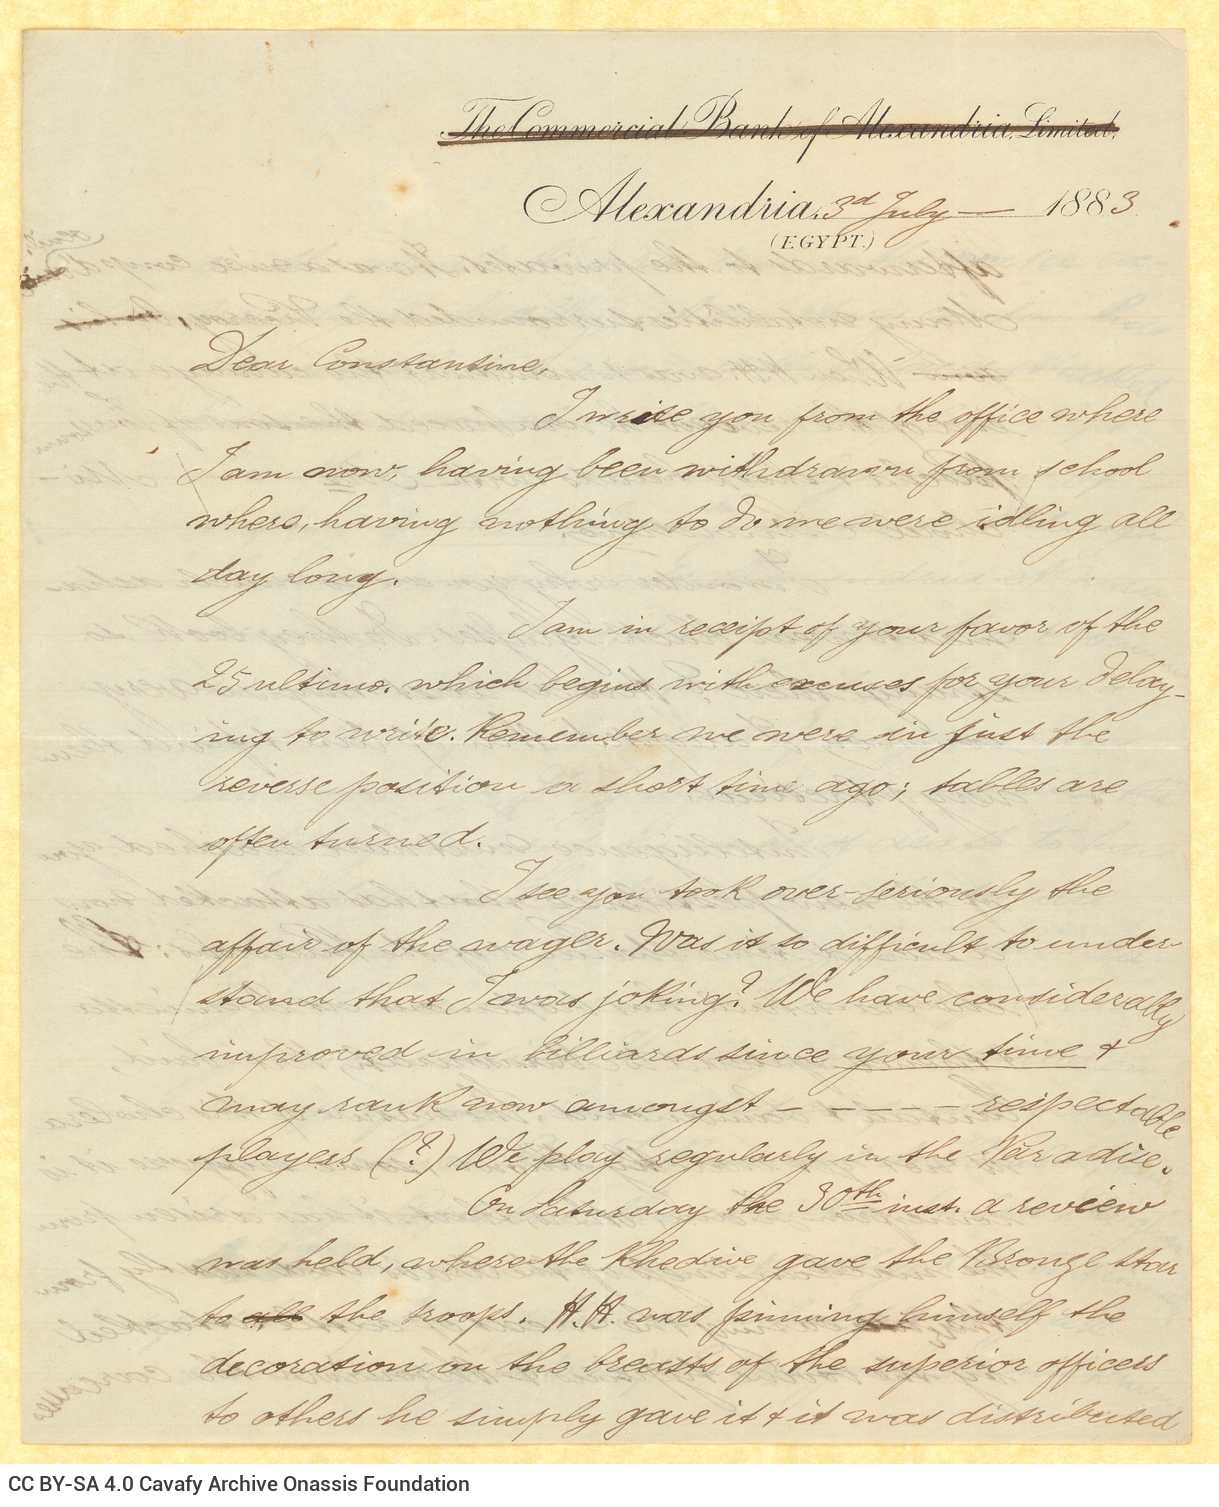 The Commercial Bank of Alexandria, Limited,
Alexandria, 3d July — 1883
(EGYPT.)
Dear Constantine,
I write you from the office where
I am now, having been withdrawn from school
where, having nothing to do we were idling all
day long.
I am in receipt of your favor of the
25 ultimo. which begins with excuses for your delay-
ing to write. Remember we were in just the
reverse position a short time ago; tables are
often turned.
I see you took over-seriously the
affair of the wager. Was it so difficult to under
stand that I was joking? We have considerally
improved in billiards since your time &
may rank now amongst - - - - - respectable
players (?) We play regularly in the Paradise.
On Saturday the 30th inst. a review
was held, where the Khedive gave the Bronze star
to all the troops. H.H. was pinning himself the
decoration on the breasts of the superior officers
to others he simply gave it & it was distributed
CC BY-SA 4.0 Cavafy Archive Onassis Foundation